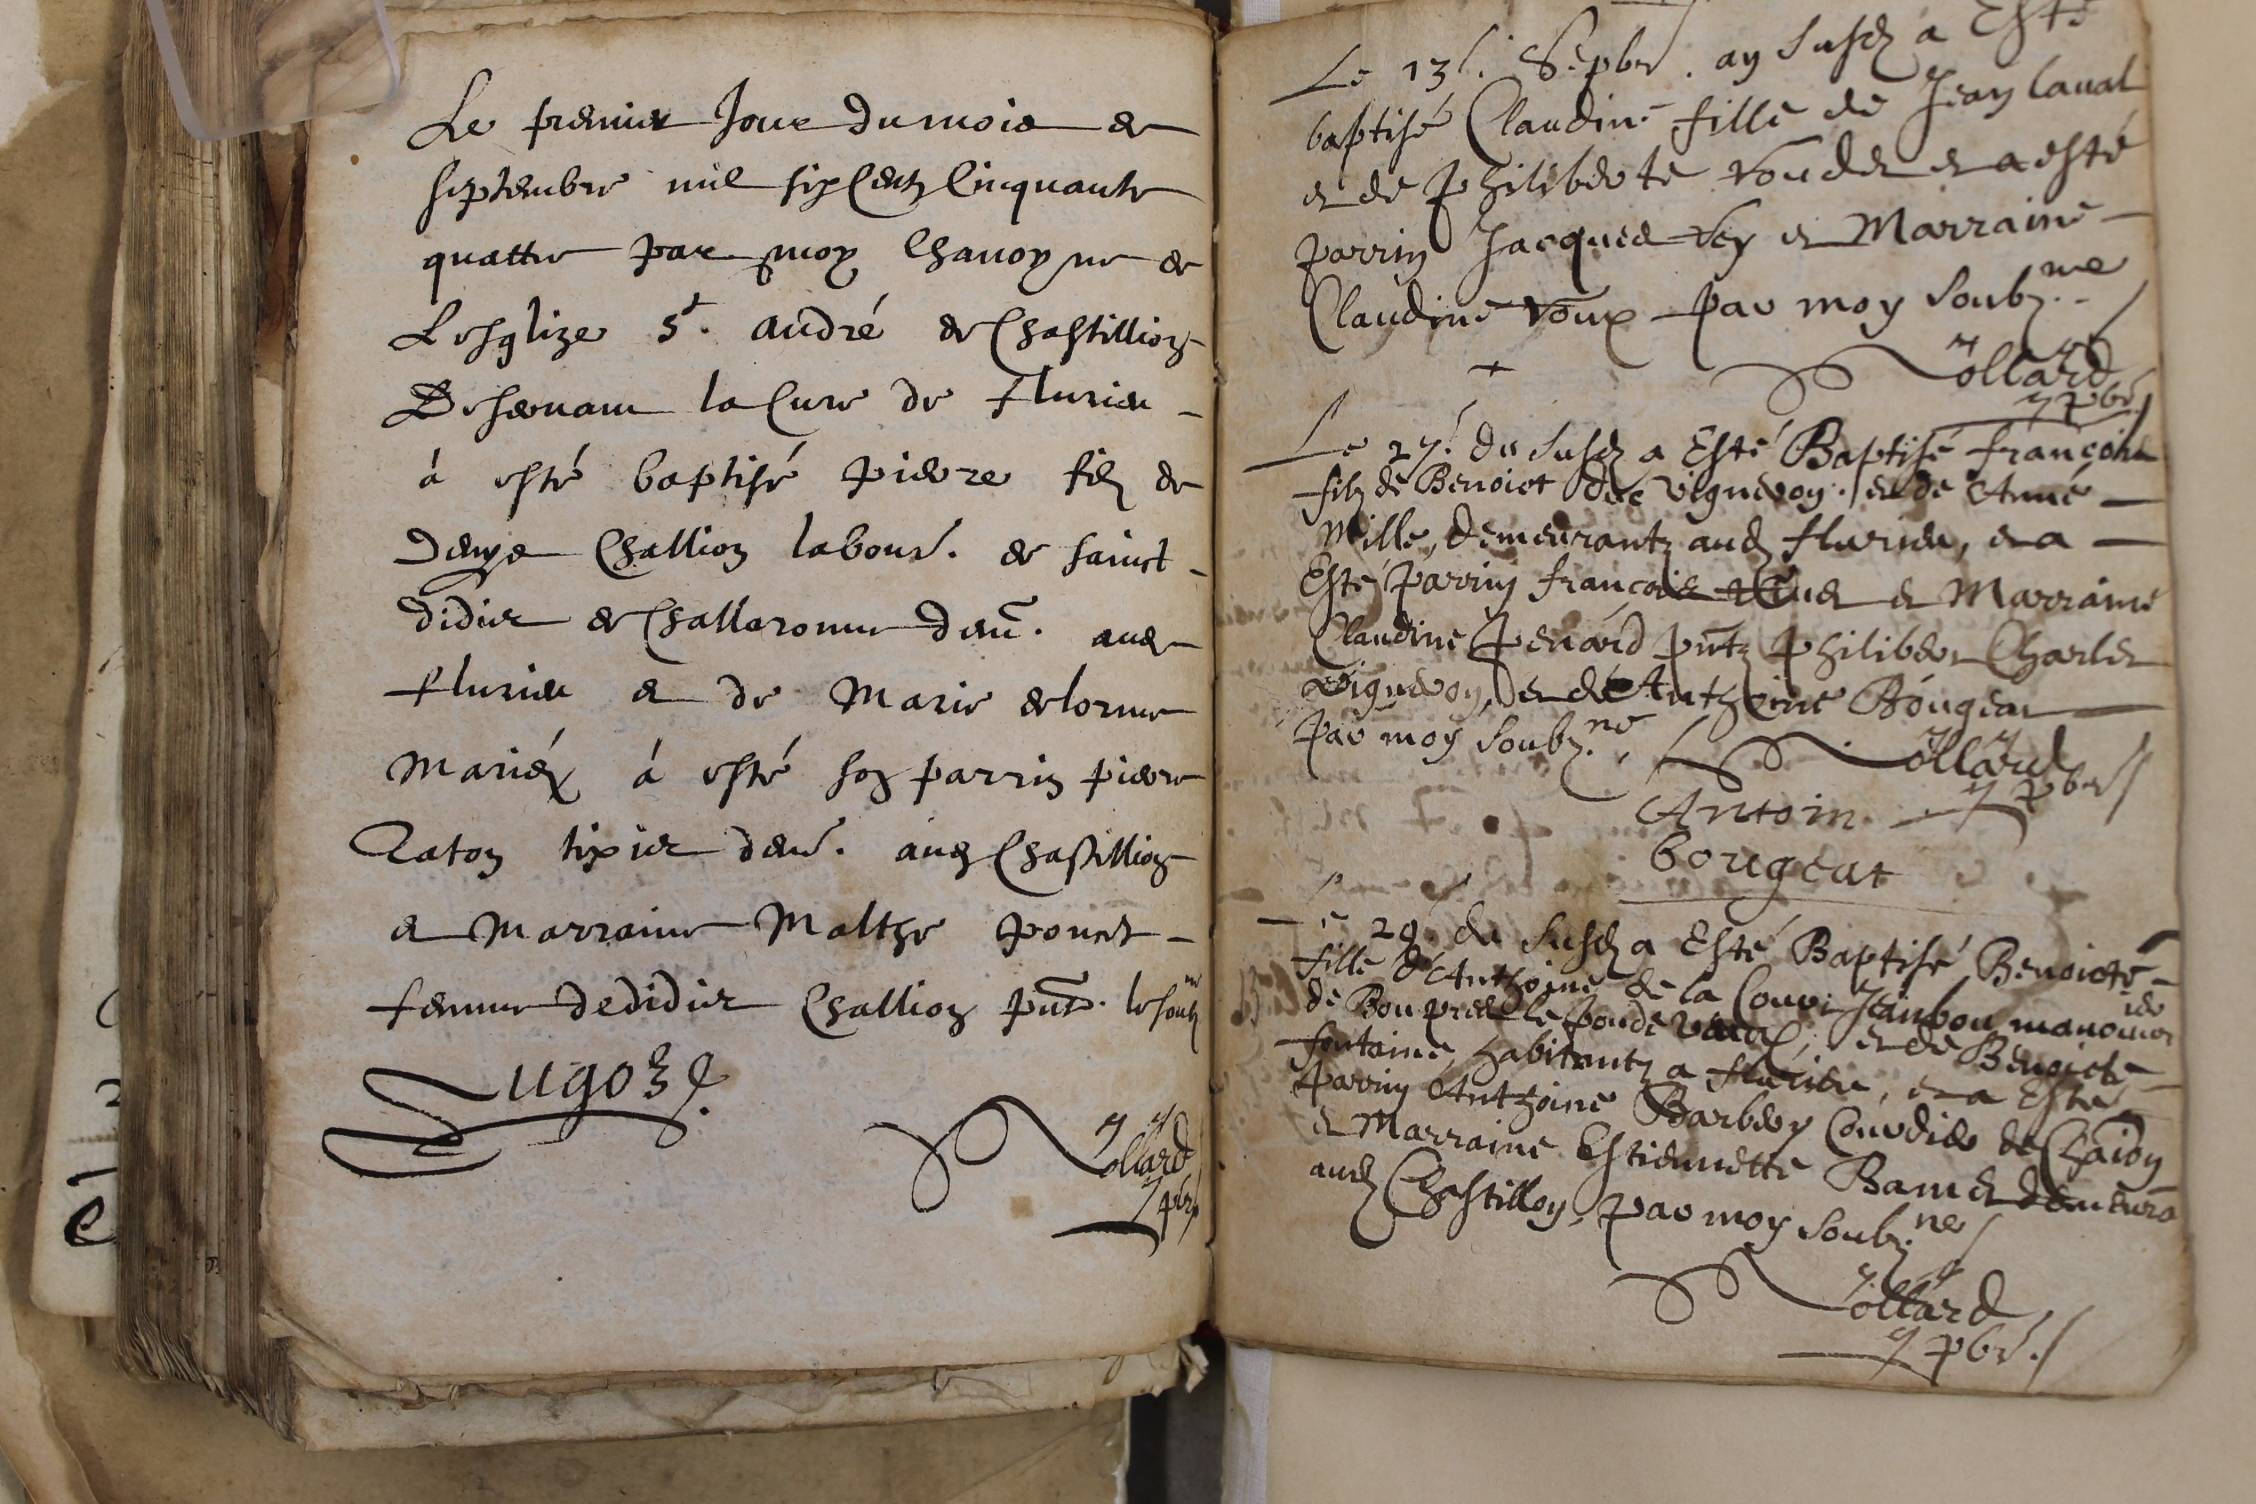 Le premier Jour du mois de
septembre mil six Centz Cinquante
quattre par moy Chanoyne de
Lesglize St. andré de Chastillion
Desservant la Cure de flurieu
à esté baptisé pierre filz de
denys Challion labour. de sainct
didier de Challaronne dem. aud
flurieu et de Marie delorme
Mariéz à esté son parrin pierre
tixier dem. aud Chastillion
et Marraine Malthe ponct
femme de didier Challion pnt. le soubz
ollard
pbr
Le 13e. Sepbr. an susd a Esté
baptisé Claudine fille de Jean laval
et de philiberte et a esté
parrin Jacques Vey et Marraine
Claudine Voux par moy soubz.ne
ollard
pbr
Le 27e. du susd a Esté Baptisé françois
filz de Benoict dec Vigneron. et de Anne
Mille, demeurantz aud flurieu, et a
Esté parrin françois et Marraine
Claudine penard pntz philiber Charles
Vigneron, et de Anthoine Bougeat
par moy soubz.ne
ollard
pbr
Antoin
bougeat
Le 29. du susd a Esté Baptisé Benoicte
fille d'Anthoine de la Cour Jambon manouvrier
de et de Benoicte
fontaine, habitantz a flurieu, et a Esté
parrin Anthoine Barbery de
et Marraine Estiennette Bamet demeura
aud Chastillon, par moy soubz.ne
ollard
pbr.